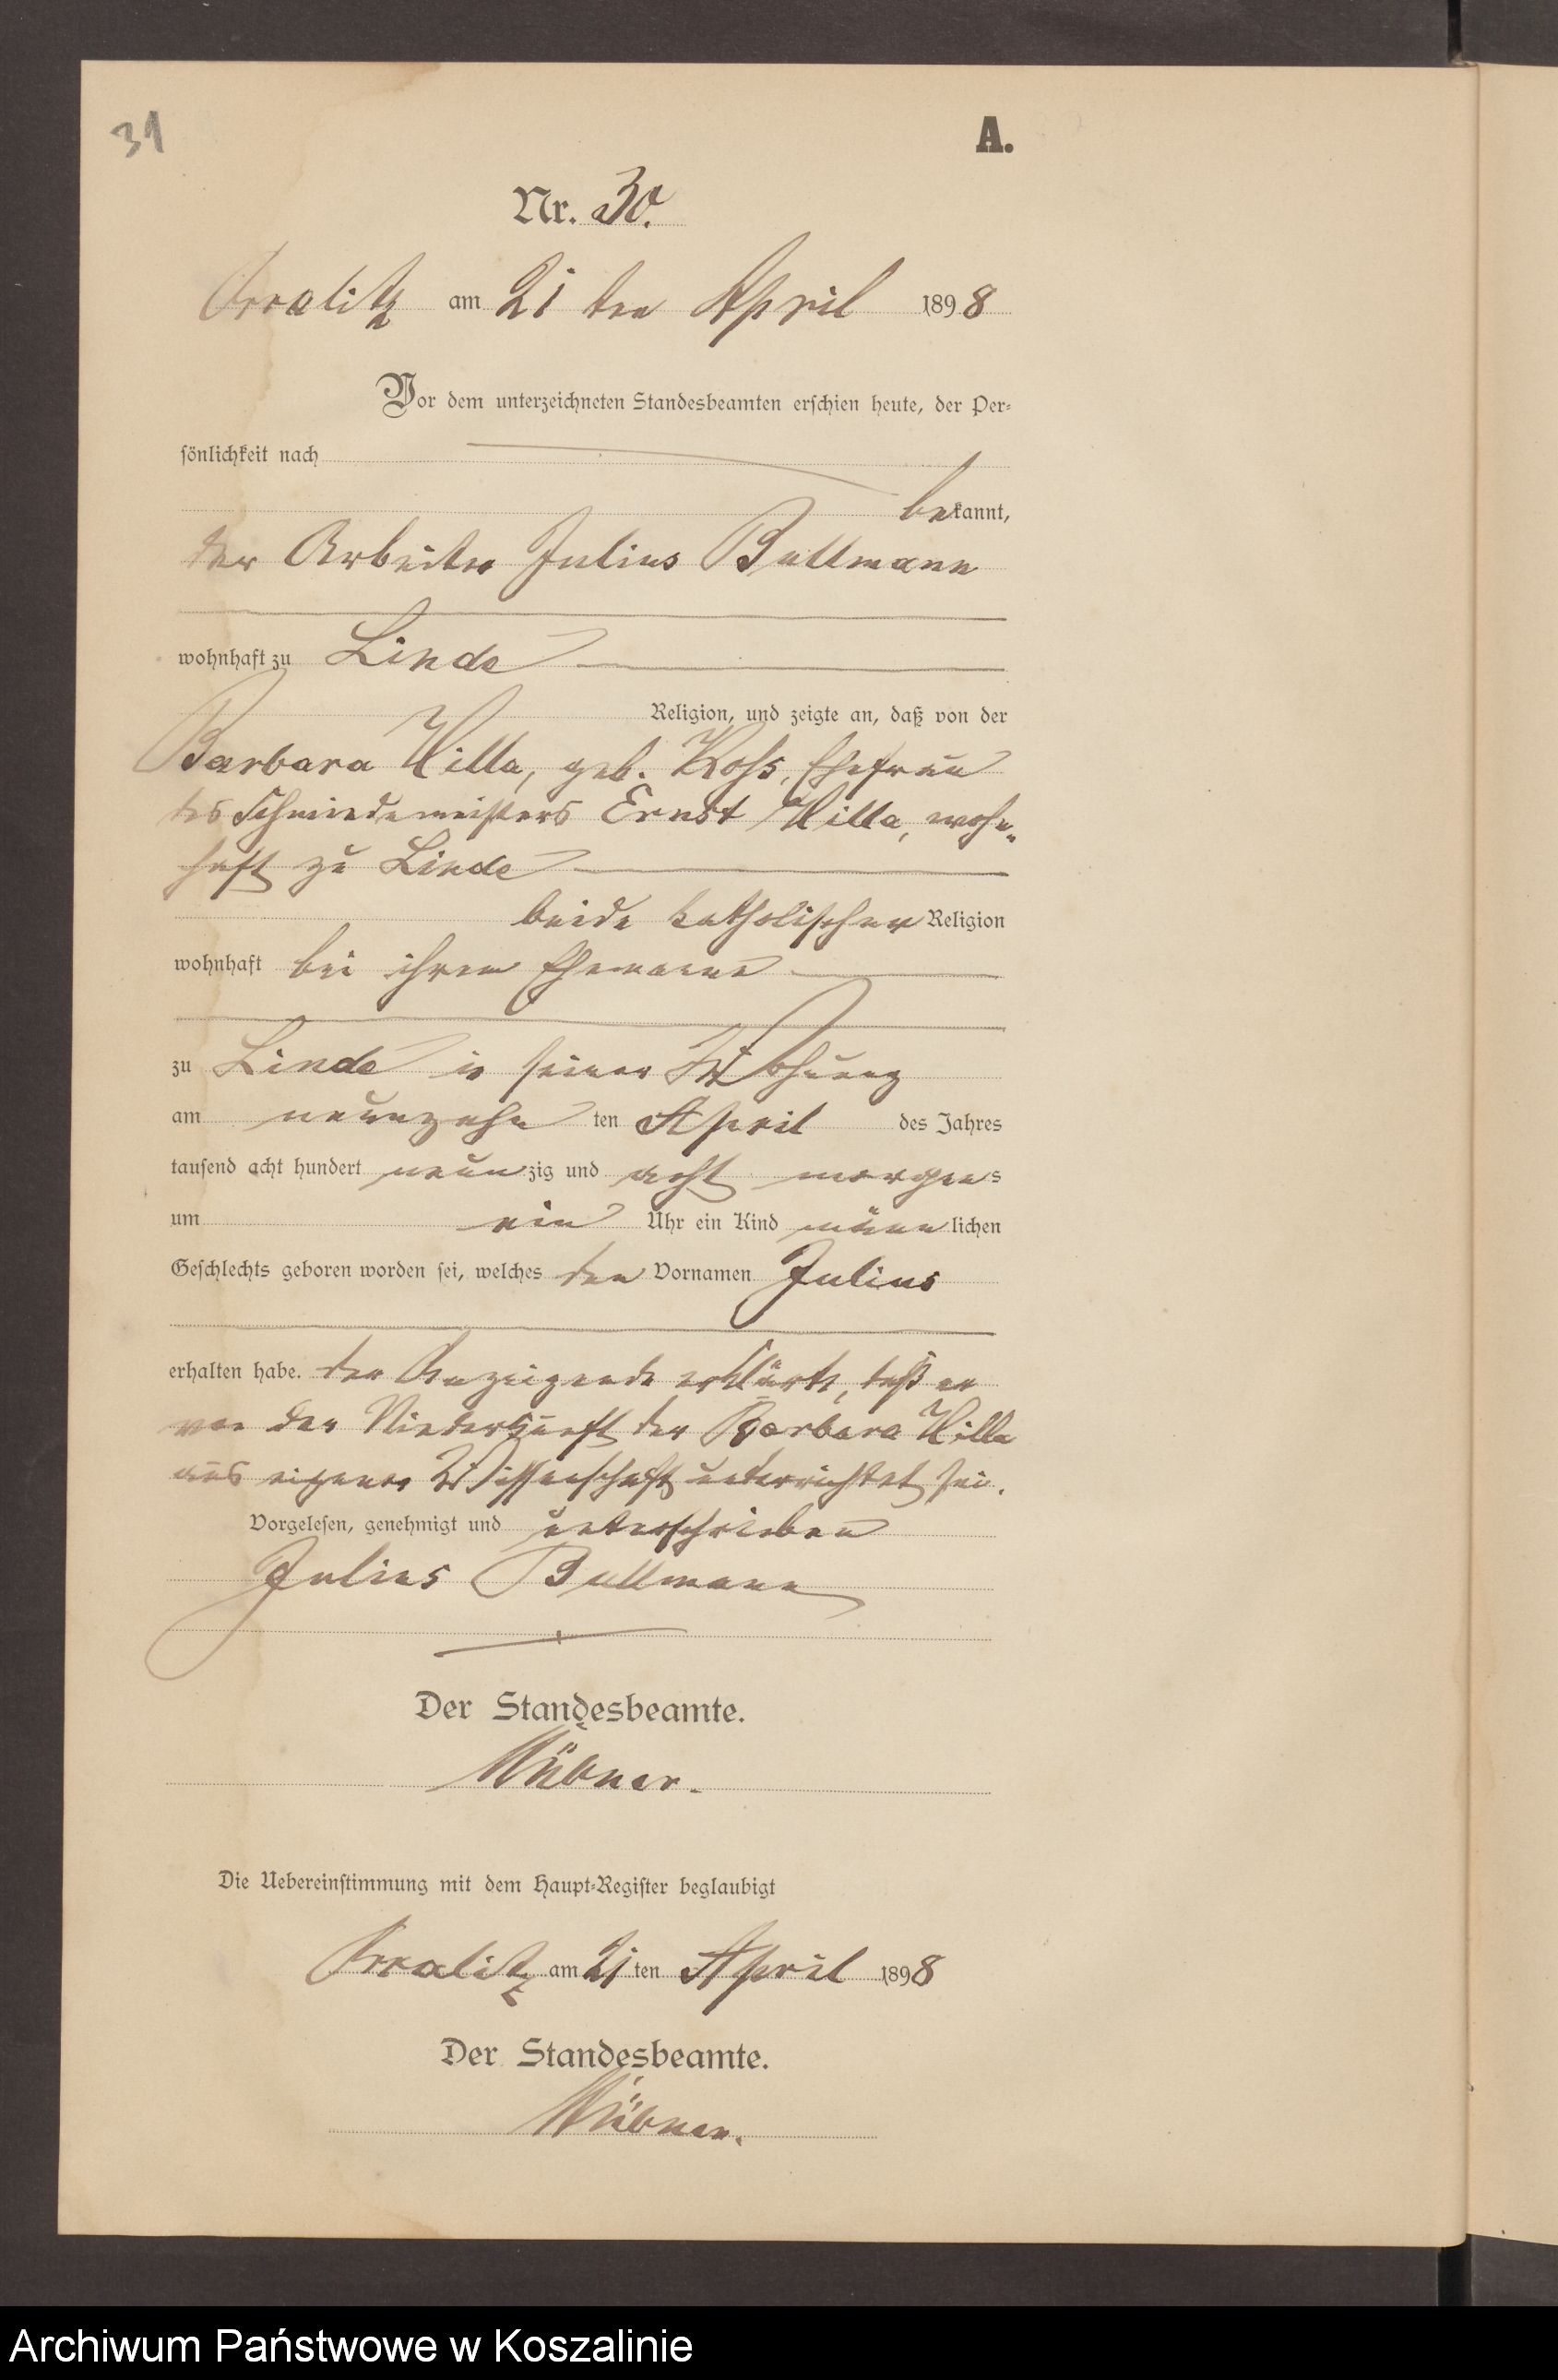 31
A.
Nr. 30.
am 21 ten April 1898
Vor dem unterzeichneten Standesbeamten erschien heute, der Per-
sönlichkeit nach
bekannt,
der Arbeiter Julius Bullmann
wohnhaft zu Linde
Religion, und zeigte an, daß von der
Barbara Hilla, geb. Ehefrau
des Schmiedemeisters Ernst Hilla, wohn-
haft zu Linde
beide katholischer Religion
wohnhaft bei ihrem Ehemanne
zu Linde in seiner Wohnung
am neunzehn ten April des Jahres
tausend acht hundert neunzig und acht morgens
um ein Uhr ein Kind männlichen
Geschlechts geboren worden sei, welches den Vornamen Julius
erhalten habe. der Anzeigende erklärte, daß er
von der Niederkunft der Barbara Hilla
aus eigener Wissenschaft unterrichtet sei.
Vorgelesen, genehmigt und unterschrieben
Julius Bullmann
Der Standesbeamte.
Hübner.
Die Uebereinstimmung mit dem Haupt-Register beglaubigt
am 21 ten April 1898
Der Standesbeamte.
Hübner.
Archiwum Państwowe w Koszalinie